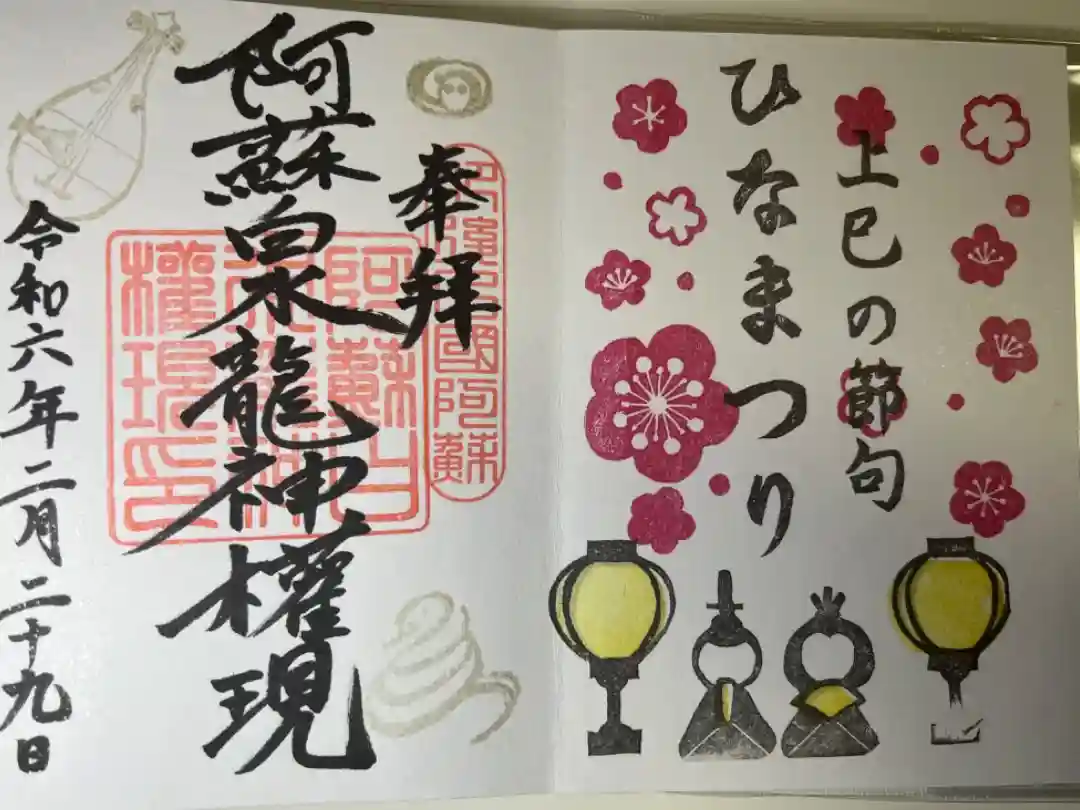 上巳の節句
ひなまつり
奉拝
國阿蘇
阿蘇白水龍神權現
阿蘇白
水龍神
權現印
令和六年二月二十九日